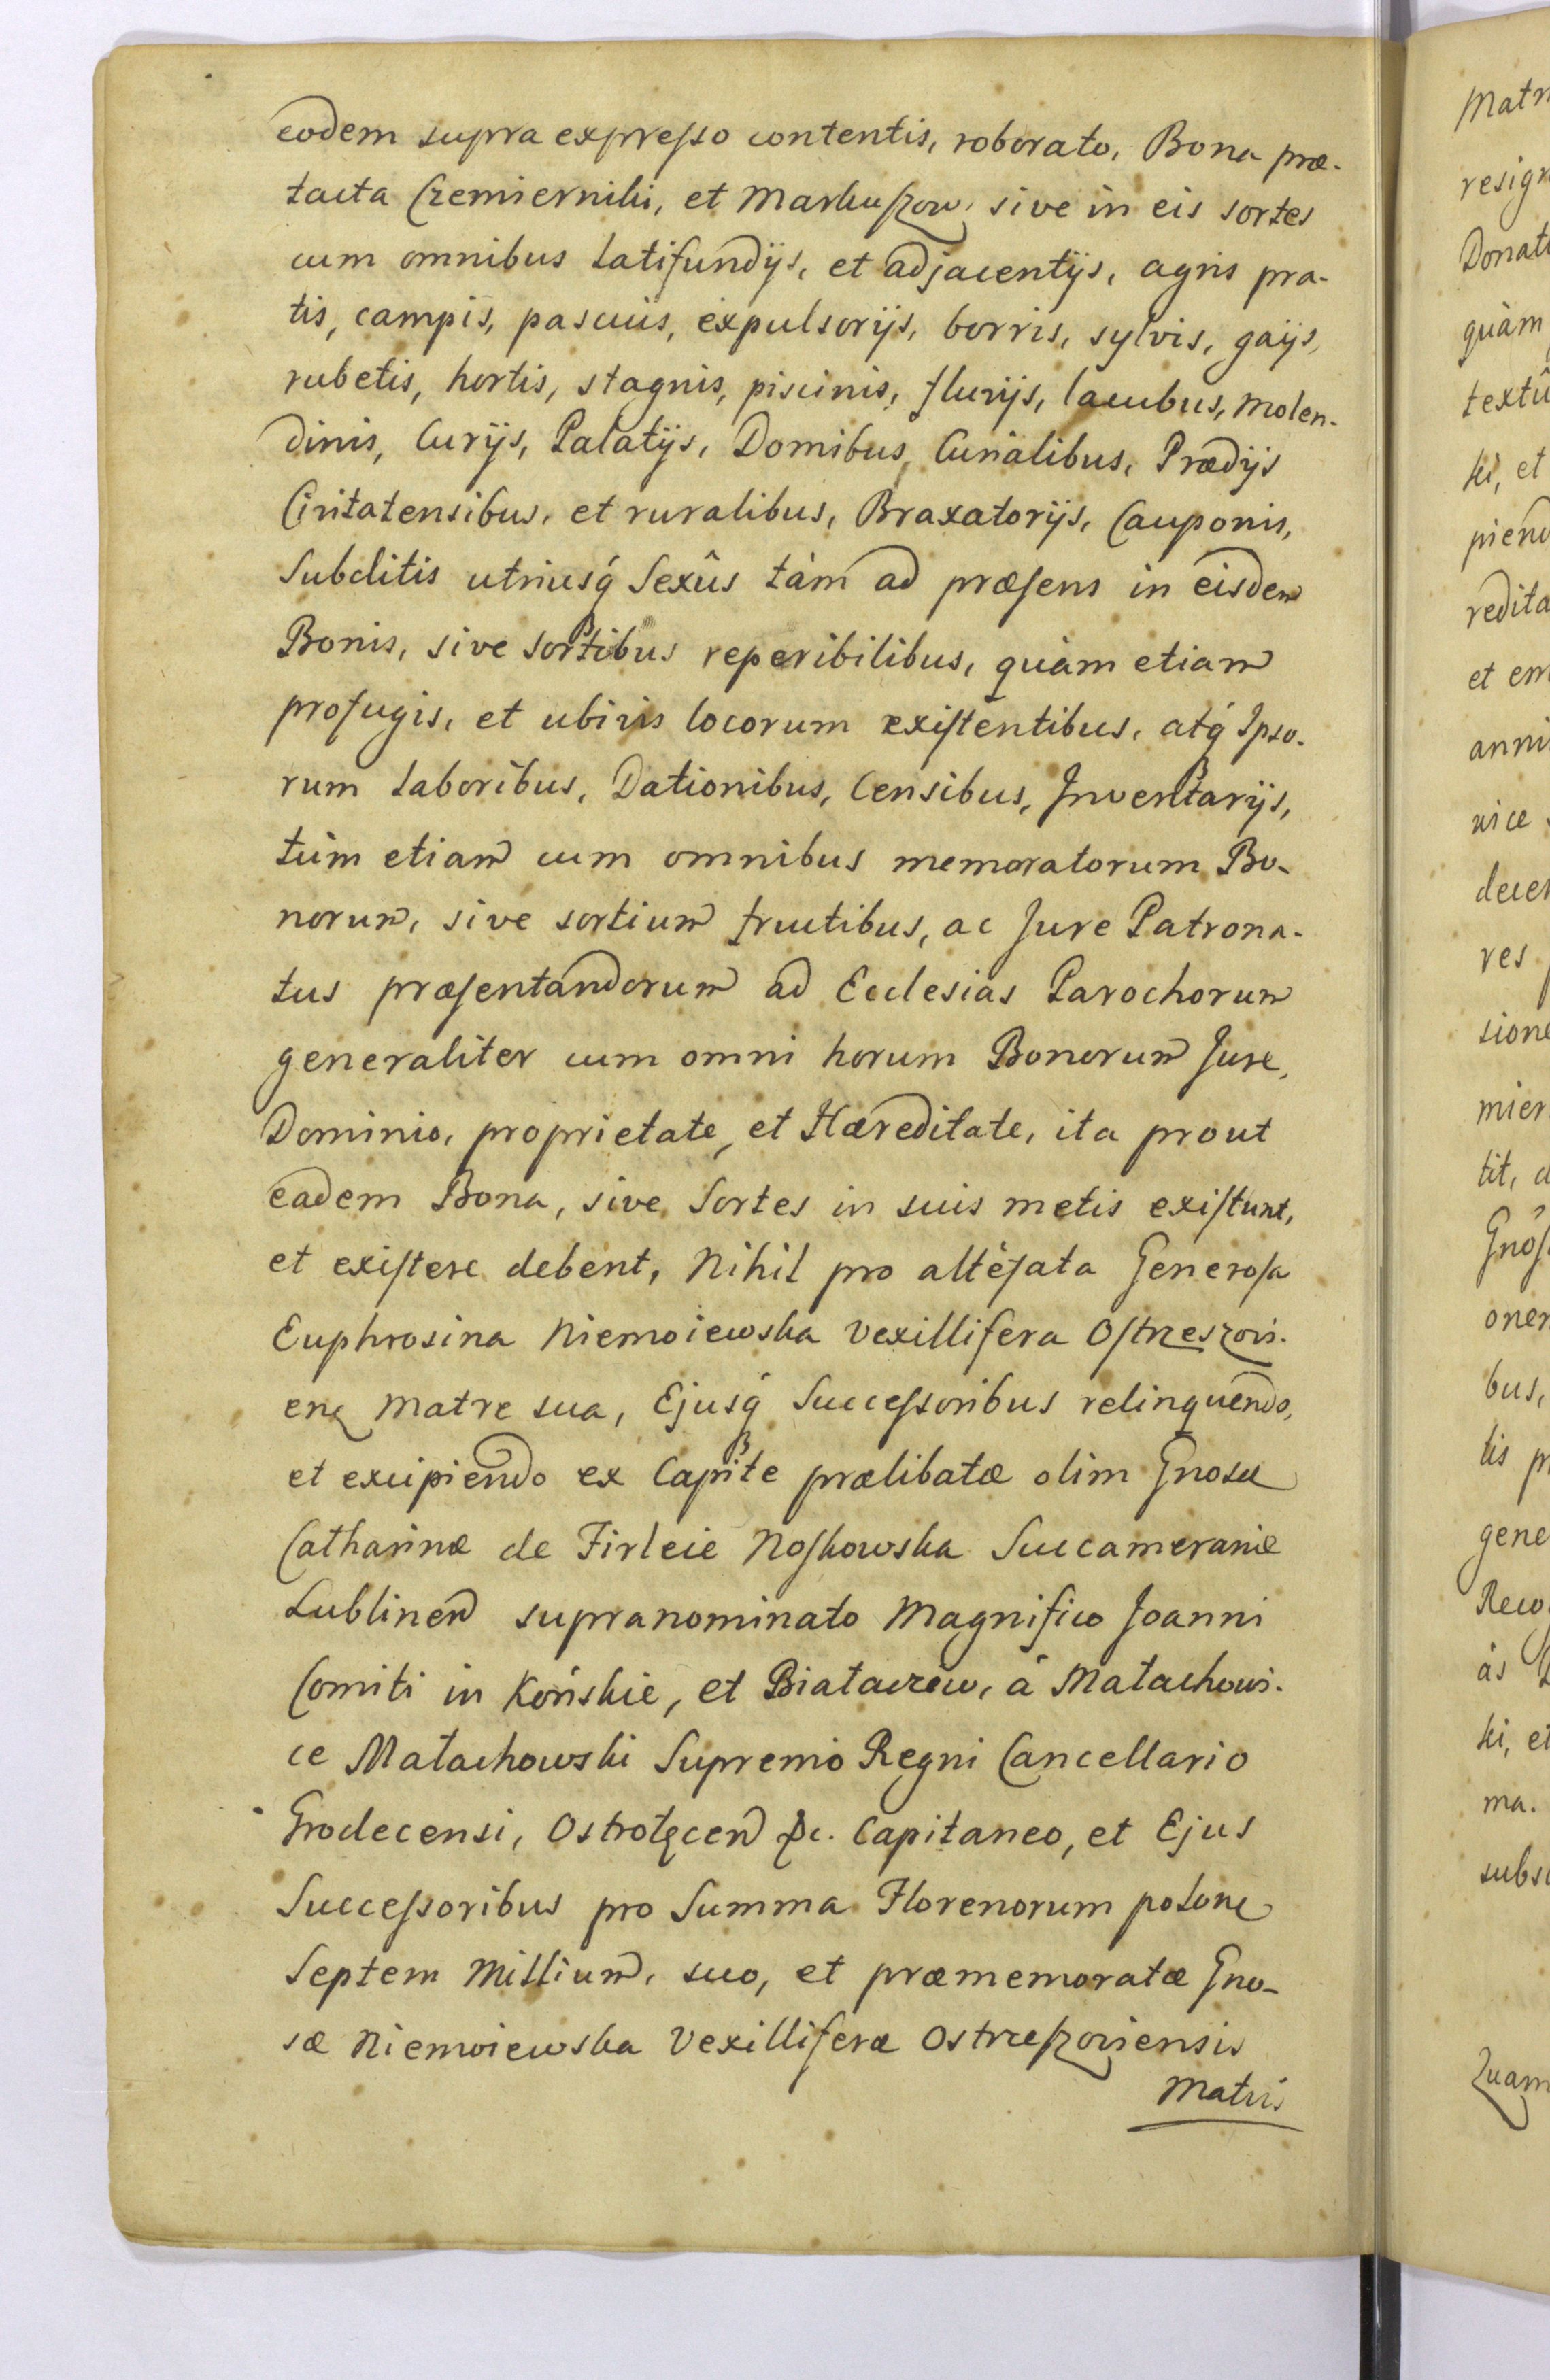 eodem supra expresso contentis, roborato, Bona præ-
tacta Czemierniki, et Markuszow, sive in eis sortes
cum omnibus Latifundijs, et adjacentijs, agris pra-
tis, campis, pascuis, expulsorijs, borris, sylvis, gaijs,
rubetis, hortis, stagnis, piscinis, fluvijs, lacubus, Molen-
dinis, Curijs, Palatijs, Domibus, Curialibus, Prædijs
Civitatensibus, et ruralibus, Braxatorijs, Cauponis,
Subditis utriusq́ Sexûs tàm ad præsens in eisdem
Bonis, sive sortibus reperibilibus, quàm etiam
profugis, et ubivis locorum existentibus, atq́ Ipso-
rum Laboribus, Dationibus, Censibus, Inventarijs,
tùm etiam cum omnibus memoratorum Bo-
norum, sive sortium fructibus, ac Jure Patrona-
tus præsentandorum ad Ecclesias Parochorum
generaliter cum omni horum Bonorum Jure,
Dominio, proprietate, et Hæreditate, ita prout
eadem Bona, sive Sortes in suis metis existunt,
et existere debent, Nihil pro altèfata Generosa
Euphrosina Niemoiewska Vexillifera Ostrzeszovi-
en̄ Matre sua, Ejusq́ Successoribus relinquendo,
et excipiendo ex Capite prælibatæ olim Gnosæ
Catharinæ de Firleie Noskowska Succameraniæ
Lublinen̄ supranominato Magnifico Joanni
Comiti in Końskie, et Białaczew, à Małachowi-
ce Małachowski Supremo Regni Cancellario
Grodecensi, Ostrołęcen̄ &c. Capitaneo, et Ejus
Successoribus pro Summa Florenorum polone
Septem Millium, suo, et præmemoratæ Gno-
sæ Niemoiewska Vexilliferæ Ostrzeszoviensis
Matris